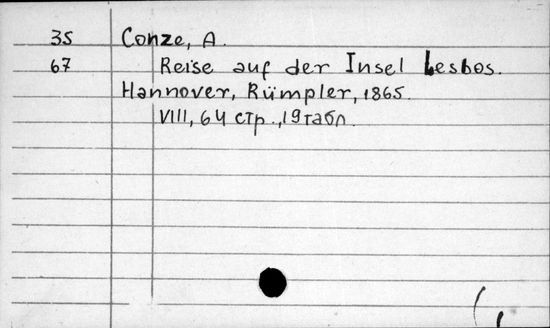 35 Conze, A.
67 Reise auf der Insel Lesbos.
Hannover, Rümpler, 1865.
VIII, 64 стр., 19 табл.